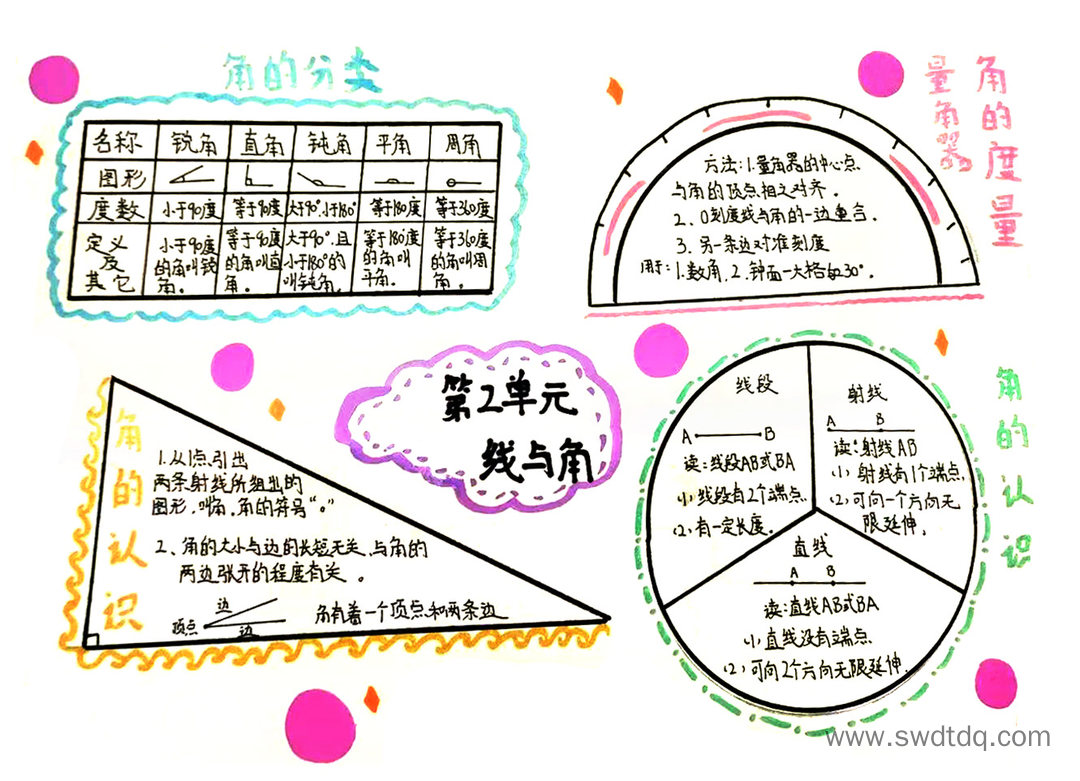 角的分类
名称 锐角 直角 钝角 平角 周角
图形
度数 小于90度 等于90度 大于90°.小于180° 等于180度 等于360度
定义及其它 小于90度的角叫锐角。 等于90度的角叫直角。 大于90°,且小于180°的叫钝角。 等于180度的角叫平角。 等于360度的角叫周角。
角的度量
量角器
方法:1.量角器的中心点
与角的顶点相互对齐。
2、0刻度线与角的一边重合。
3、另一条边对准刻度
用于:1.数角.2.钟面一大格的30°.
第2单元
线与角
角的认识
1.从1点引出
两条射线所组出的
图形,叫角,角的符号“。”
2、角的大小与边的长短无关,与角的
两边张开的程度有关。
边
顶点
边
角有着一个顶点和两条边
角的认识
线段
A B
读:线段AB或BA
(1)线段有2个端点.
(2)有一定长度.
射线
A B
读:射线AB
(1)射线有1个端点.
(2)可向一个方向无
限延伸.
直线
A B
读:直线AB或BA
(1)直线没有端点
(2)可向2个方向无限延伸.
www.swdtdq.com